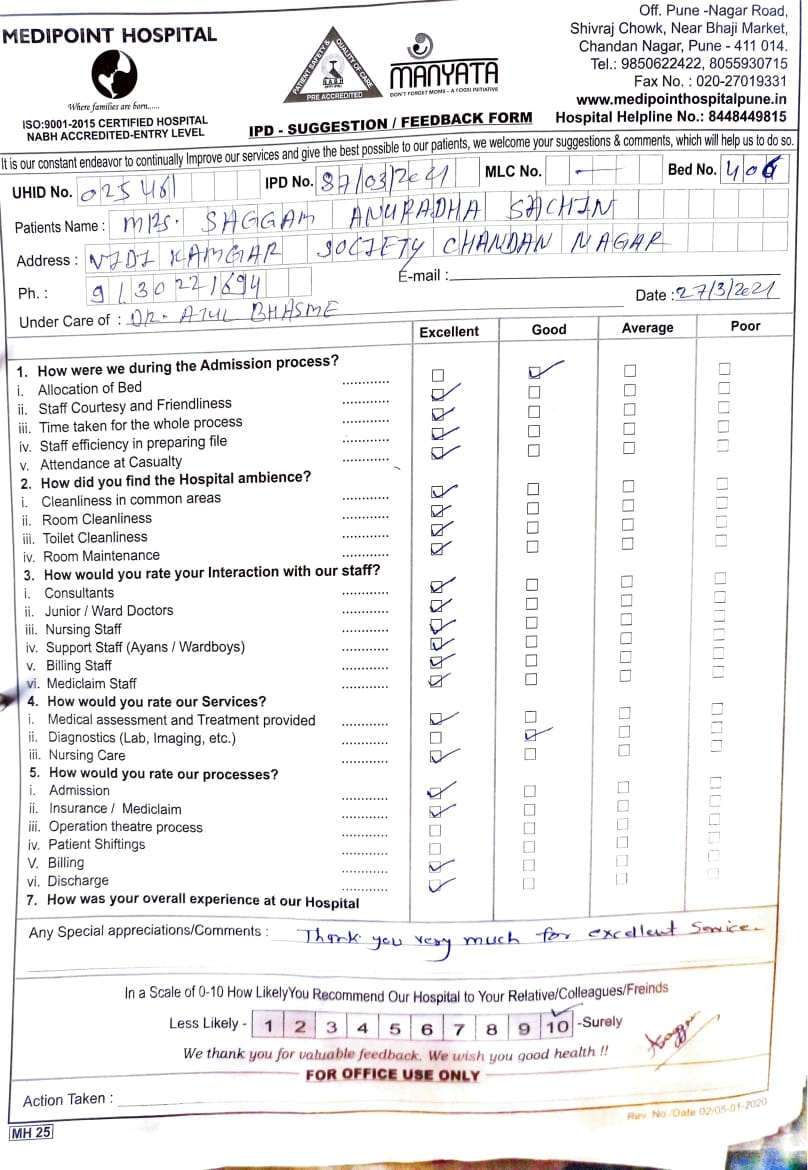 MEDIPOINT HOSPITAL
Where families are born......
ISO:9001-2015 CERTIFIED HOSPITAL
NABH ACCREDITED-ENTRY LEVEL
PATIENT SAFETY & QUALITY OF CARE
N.A.B.H
PRE ACCREDITED
MANYATA
DON'T FORGET MOMS - A FOGSI INITIATIVE
Off. Pune -Nagar Road,
Shivraj Chowk, Near Bhaji Market,
Chandan Nagar, Pune - 411 014.
Tel.: 9850622422, 8055930715
Fax No. : 020-27019331
www.medipointhospitalpune.in
Hospital Helpline No.: 8448449815
IPD - SUGGESTION / FEEDBACK FORM
It is our constant endeavor to continually Improve our services and give the best possible to our patients, we welcome your suggestions & comments, which will help us to do so.
UHID No. 025461 IPD No. 87/03/2021 MLC No. — Bed No. 406
Patients Name : MRS. SAGGAM ANURADHA SACHIN
Address : VIDI KAMGAR SOCIETY CHANDAN NAGAR
Ph. : 9130221694 E-mail :
Under Care of : DR. ATUL BHASME Date : 27/3/2021
Excellent Good Average Poor
1. How were we during the Admission process?
i. Allocation of Bed ............
ii. Staff Courtesy and Friendliness ............
iii. Time taken for the whole process ............
iv. Staff efficiency in preparing file ............
v. Attendance at Casualty ............
2. How did you find the Hospital ambience?
i. Cleanliness in common areas ............
ii. Room Cleanliness ............
iii. Toilet Cleanliness ............
iv. Room Maintenance ............
3. How would you rate your Interaction with our staff?
i. Consultants ............
ii. Junior / Ward Doctors ............
iii. Nursing Staff ............
iv. Support Staff (Ayans / Wardboys) ............
v. Billing Staff ............
vi. Mediclaim Staff ............
4. How would you rate our Services?
i. Medical assessment and Treatment provided ............
ii. Diagnostics (Lab, Imaging, etc.) ............
iii. Nursing Care ............
5. How would you rate our processes?
i. Admission ............
ii. Insurance / Mediclaim ............
iii. Operation theatre process ............
iv. Patient Shiftings ............
V. Billing ............
vi. Discharge ............
7. How was your overall experience at our Hospital
Any Special appreciations/Comments : Thank you very much for excellent Service.
In a Scale of 0-10 How LikelyYou Recommend Our Hospital to Your Relative/Colleagues/Freinds
Less Likely - 1 2 3 4 5 6 7 8 9 10 -Surely
We thank you for valuable feedback. We wish you good health !!
FOR OFFICE USE ONLY
Action Taken :
Rev. No /Date 02/05-01-2020
MH 25